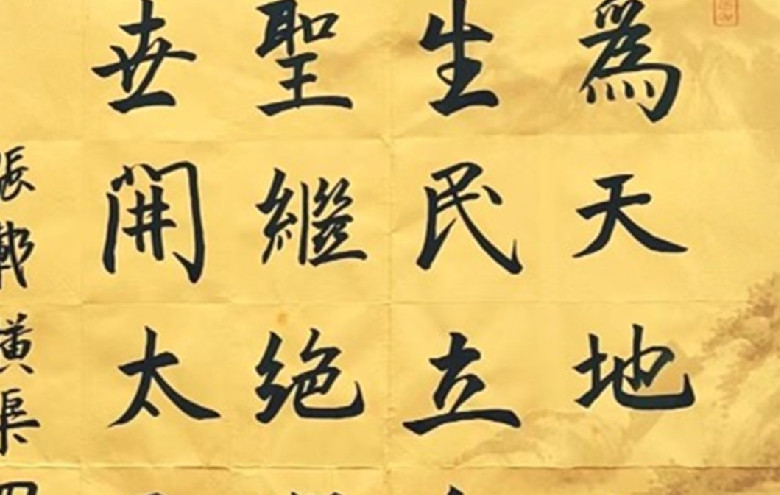 為天地
生民立
聖繼絕
世開太
張載橫渠